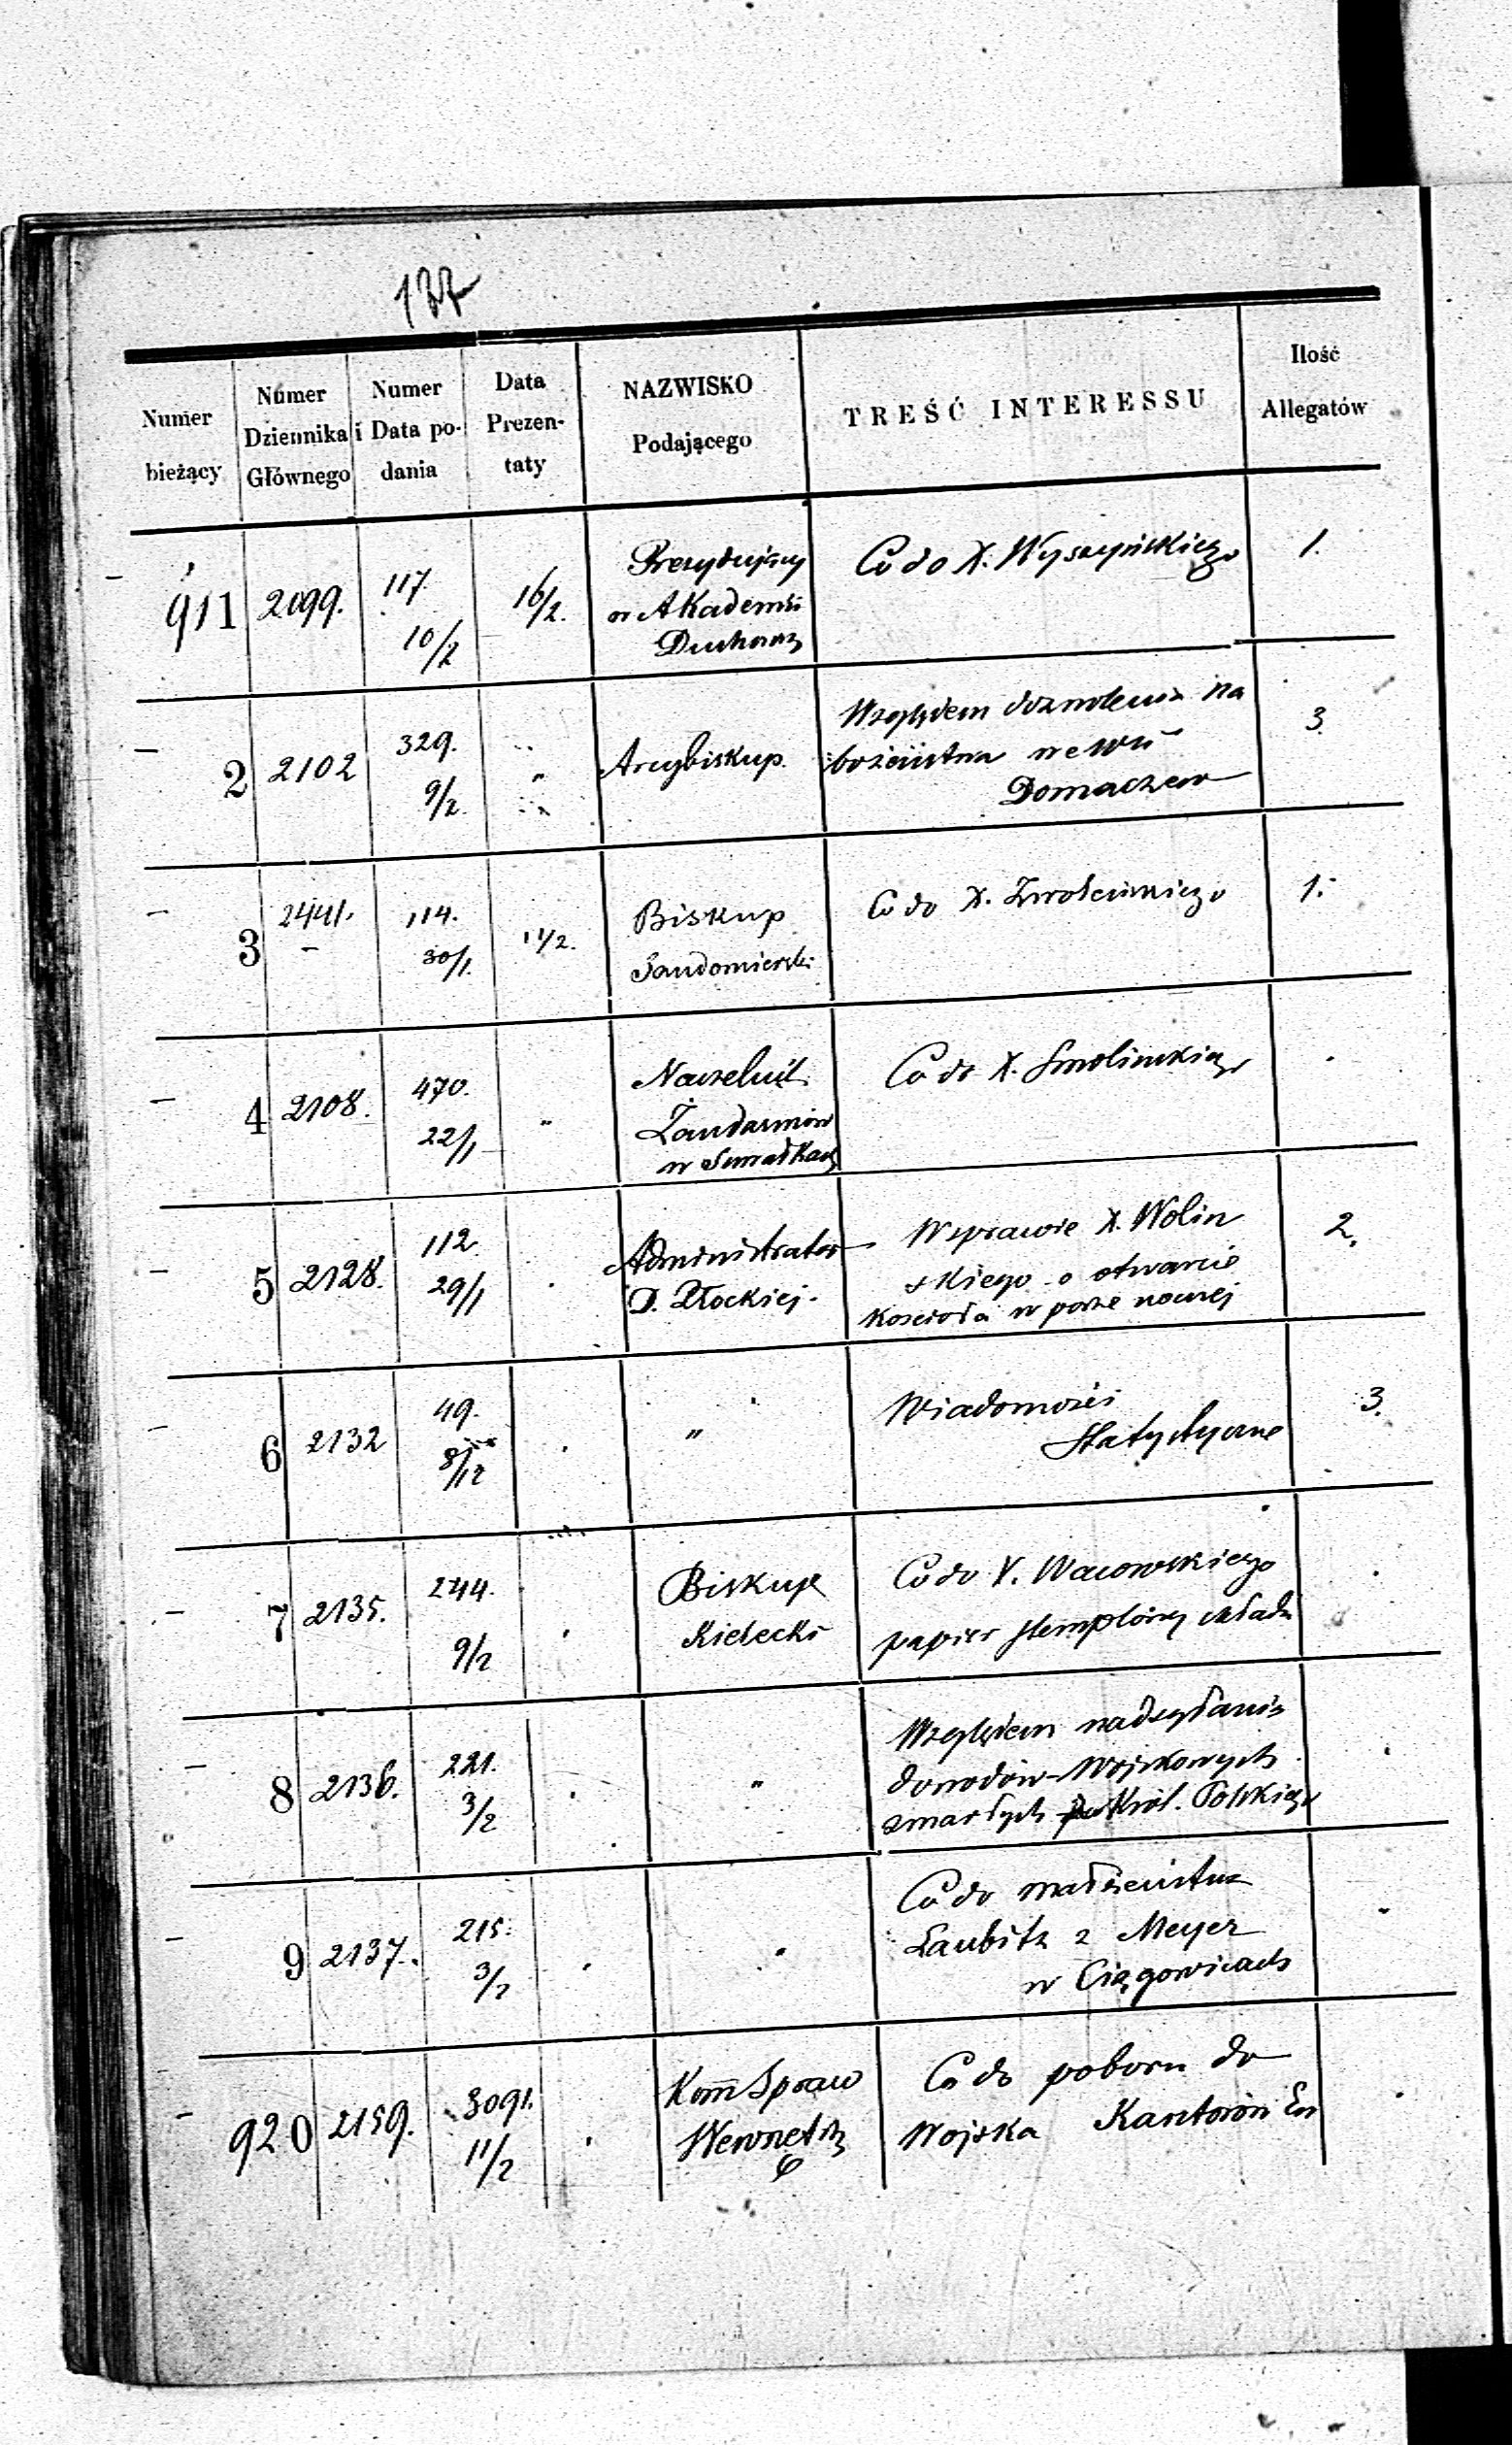 137
Numer bieżący
Numer Dziennika Głównego
Numer i Data podania
Data Prezentaty
NAZWISKO Podającego
TREŚĆ INTERESSU
Ilość Allegatów
911 2099. 117. 10/2 16/2. Prezydujący w Akademii Duchown Co do X. Wyszyńskiego 1.
2 2102 329. 9/2. " Arcybiskup. Względem dozwolenia na
bożeństwa we wsi
Domaczew 3.
3 2441. 114. 30/1. 11/2. Biskup
Sandomierski Co do X. 1.
4 2108. 470. 22/1 " Naczelnik
Żandarmów
w Suwałkach Co do X. Smolinskiego
5 2128. 112. 29/1 Administrator
D. Płockiej. W sprawie X. Wolin
skiego o otwarcie
kościoła w porze nocnej 2.
6 2132 49. 8/12 " Wiadomości
Statystyczne 3.
7 2135. 244. 9/2 Biskup
Kielecki Co do X. Wacowskiego
papier stemplowy składa
8 2136. 221. 3/2 " Względem nadsyłania
dowodów Wojskowych
zmarłych Król. Polskiego
9 2137. 215. 3/2 Co do małżeństwa
Laubitz z Meyer
w Ciągowicach
920 2159. 3091. 11/2 Kom Spraw
Wewnętrz Co do poboru do
Wojska Kantorów